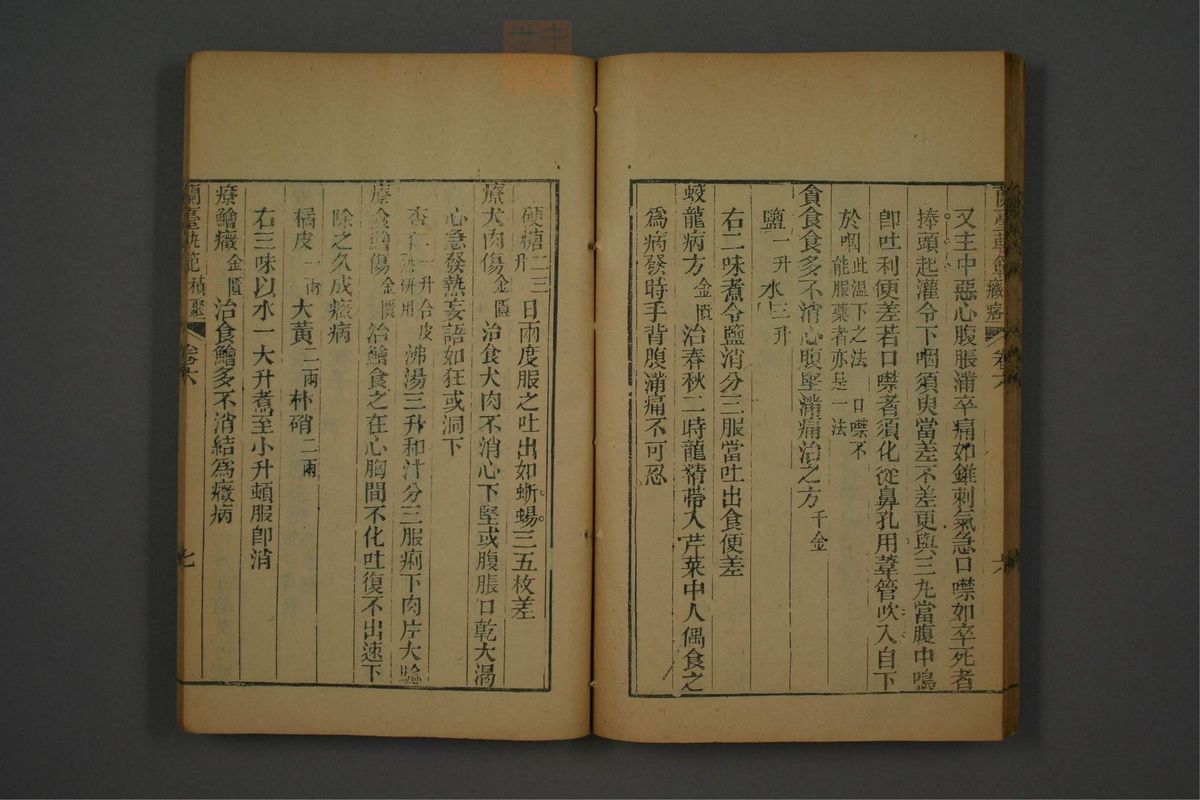 蘭臺軌範癥瘕 卷六 六
又主中惡心腹脹滿卒痛如錐刺氣急口噤如卒死者
捧頭起灌令下咽須臾當差不差更與三丸當腹中鳴
卽吐利便差若口噤者須化從鼻孔用葦管吹入自下
於咽此溫下之法口噤不
能服藥者亦是一法
貪食食多不消心腹堅滿痛治之方千金
鹽一升水三升
右二味煮令鹽消分三服當吐出食便差
蛟龍病方金匱治春秋二時龍精帶入芹菜中人偶食之
爲病發時手背腹滿痛不可忍
硬糖二三升
日兩度服之吐出如蜥蜴三五枚差
療犬肉傷金匱治食犬肉不消心下堅或腹脹口乾大渴
心急發熱妄語如狂或洞下
杏仁一升合皮熟研用沸湯三升和汁分三服痢下肉片大驗
療食鱠傷金匱治鱠食之在心胸間不化吐復不出速下
除之久成癥病
橘皮一兩大黃二兩朴硝二兩
右三味以水一大升煮至小升頓服卽消
療鱠癥金匱治食鱠多不消結爲癥病
蘭臺軌範積聚 卷六 七